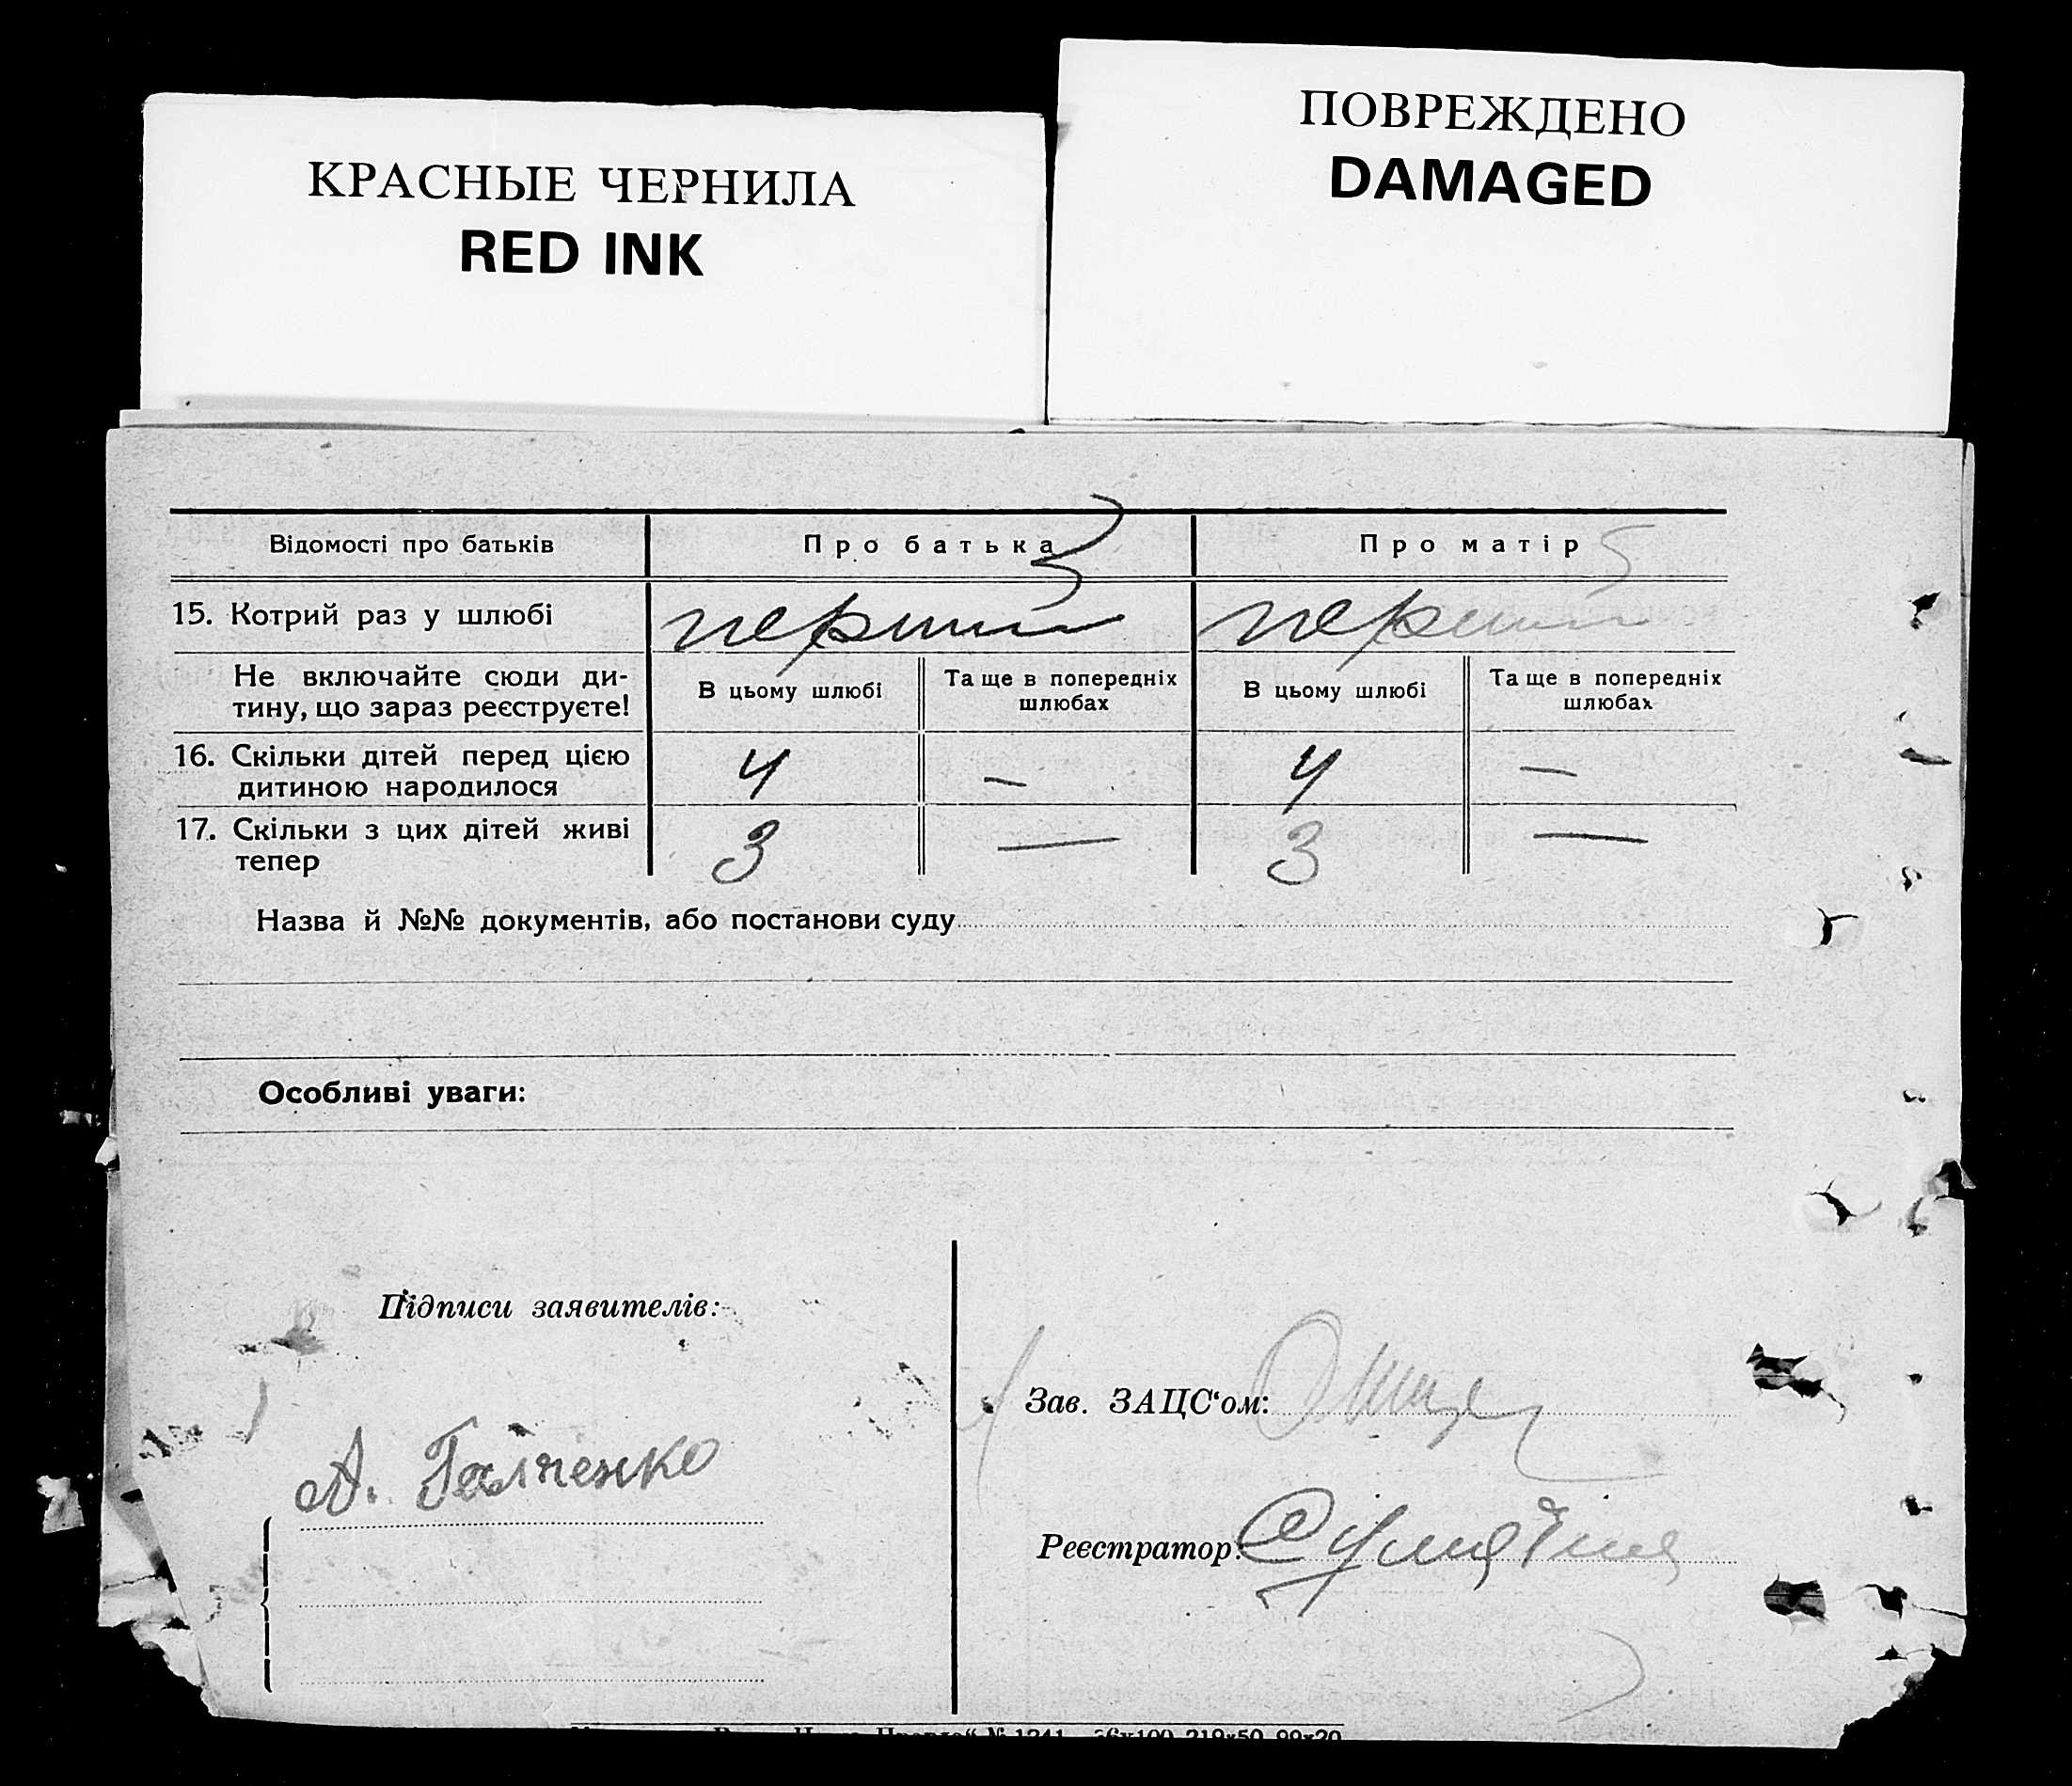 КРАСНЫЕ ЧЕРНИЛА
RED INK
ПОВРЕЖДЕНО
DAMAGED
Відомості про батьків Про батька Про матір
15. Котрий раз у шлюбі перший перший
Не включайте сюди ди-
тину, що зараз реєструєте!
В цьому шлюбі
Та ще в попередніх
шлюбах
В цьому шлюбі
Та ще в попередніх
шлюбах
16. Скільки дітей перед цією
дитиною народилося
4 — 4 —
17. Скільки з цих дітей живі
тепер
3 — 3 —
Назва й №№ документів, або постанови суду
Особливі уваги:
Підписи заявителів:
А. Галченко
Зав. ЗАЦС‘ом:
Реєстратор: